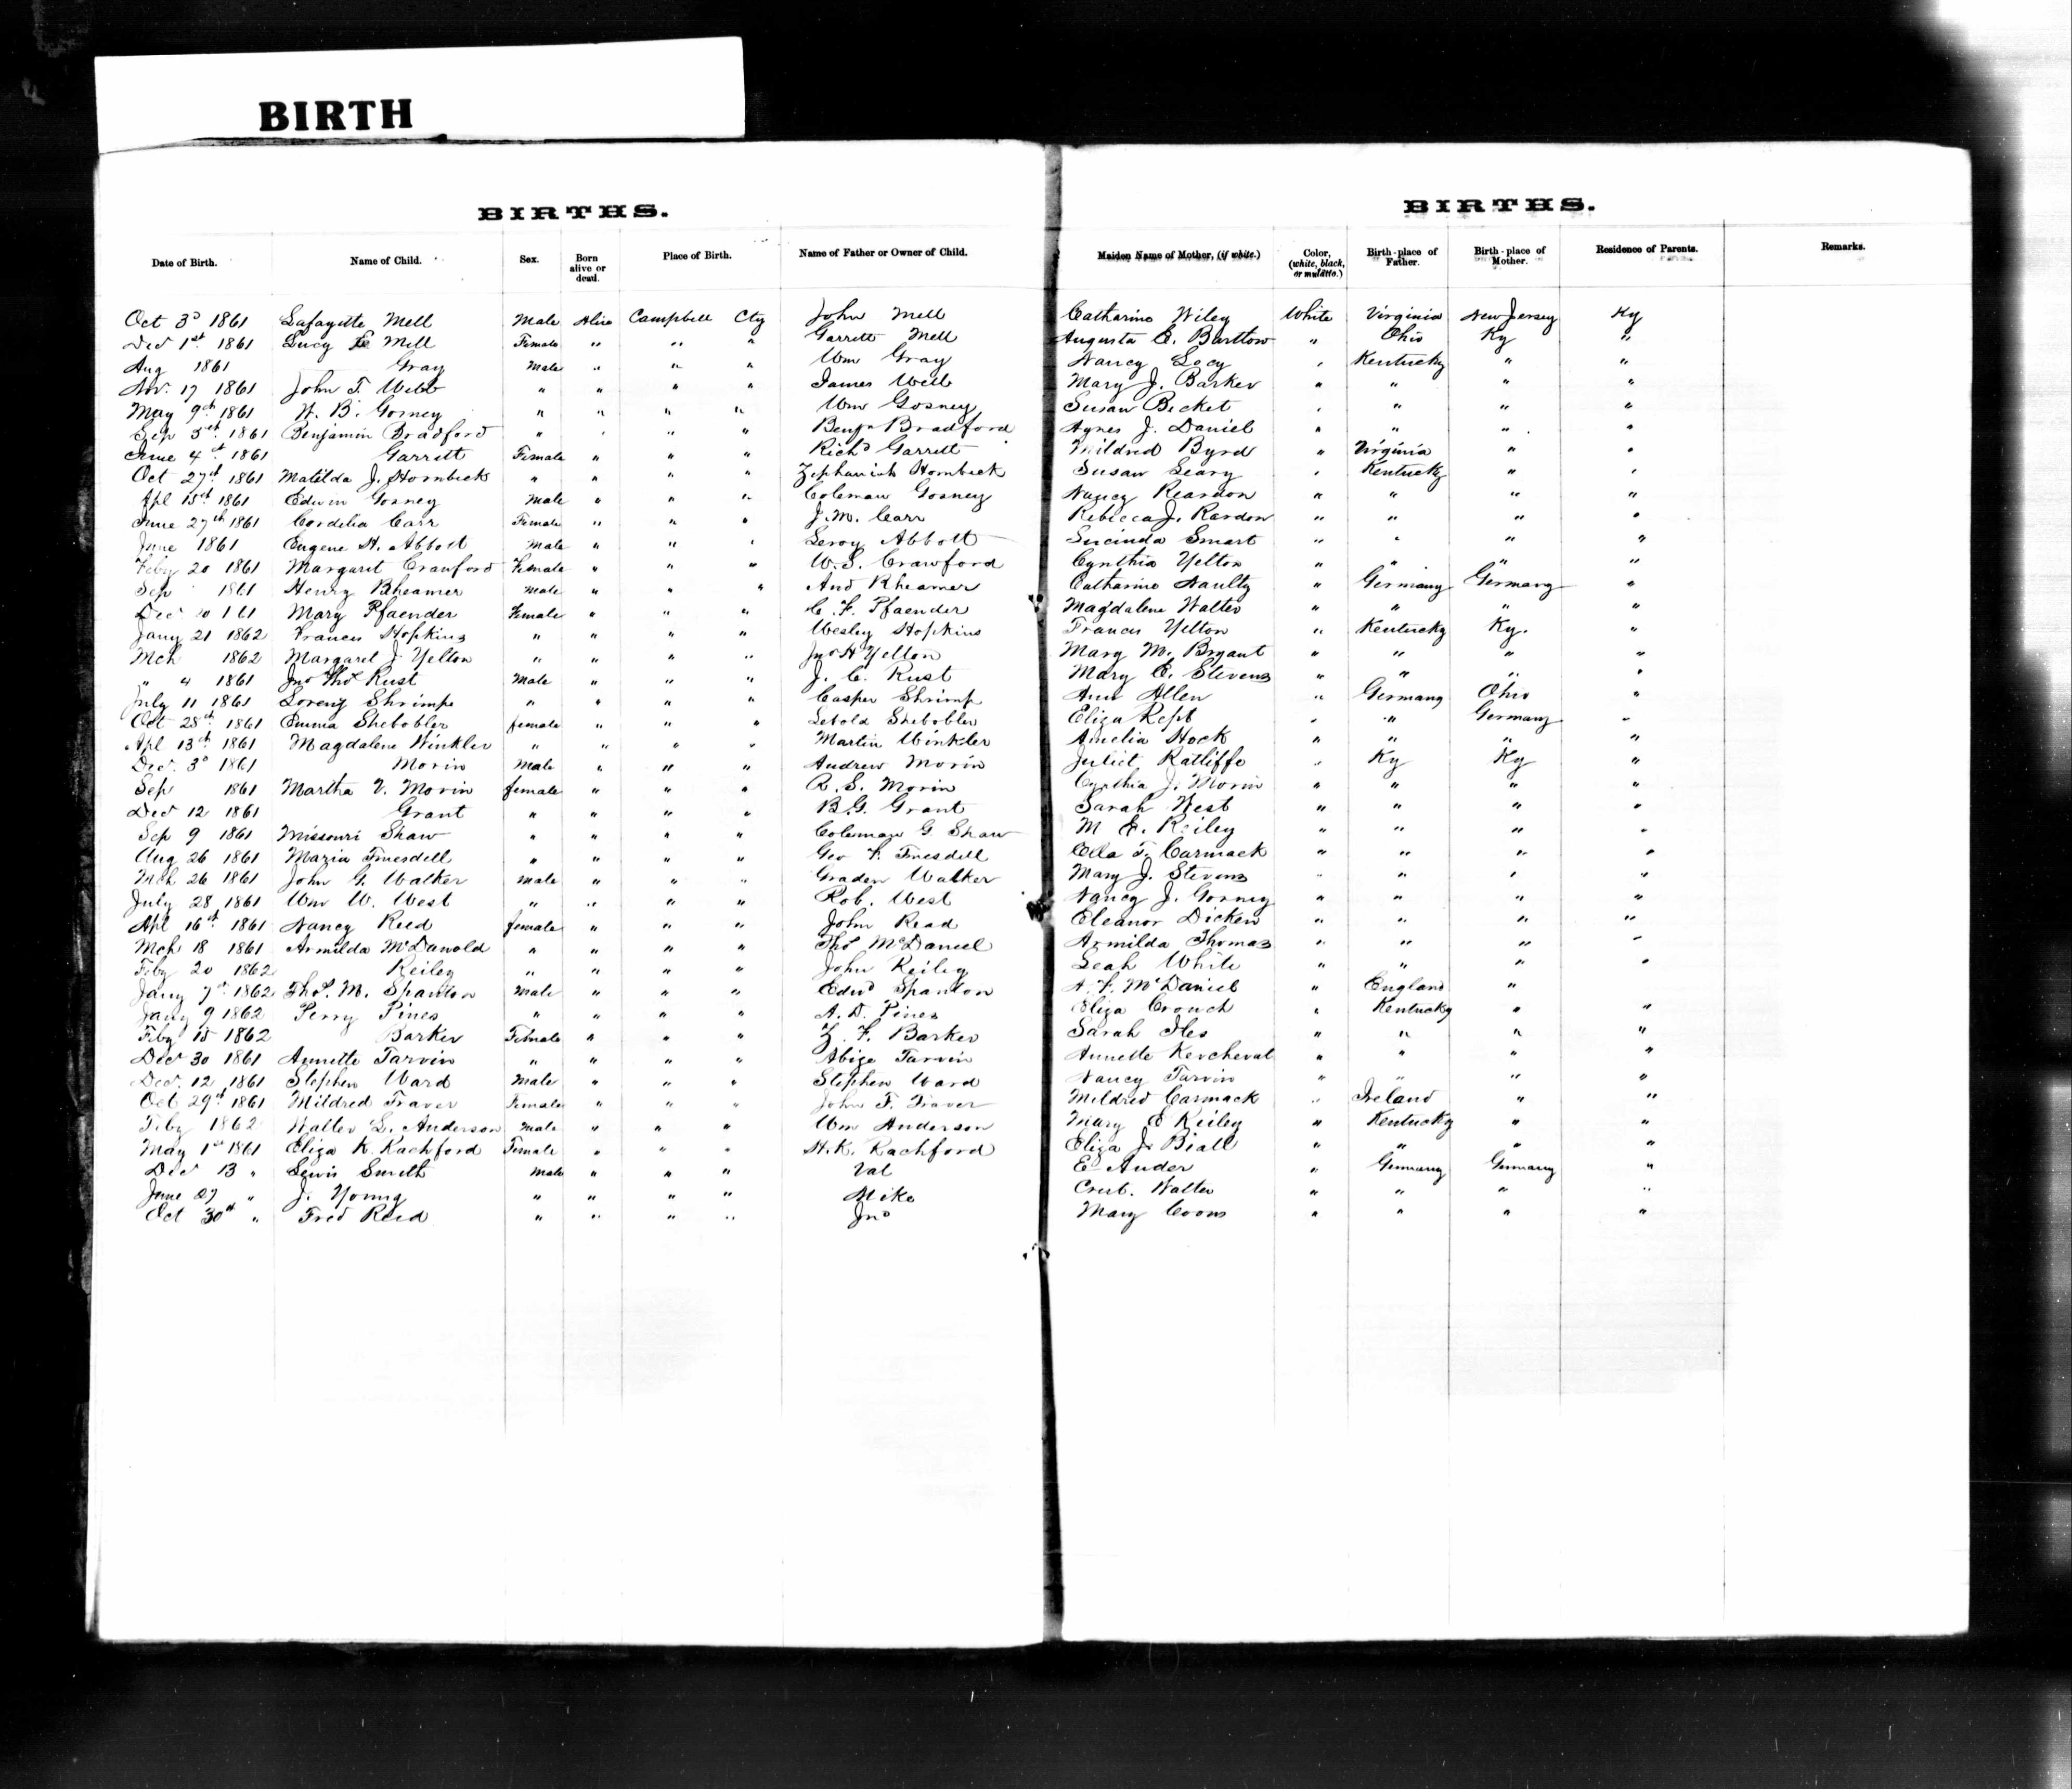 BIRTH
BIRTHS.
BIRTHS.
Date of Birth. Name of Child. Sex. Born alive or dead. Place of Birth. Name of Father or Owner of Child. Maiden Name of Mother, (if white.) Color, (white, black, or mulatto.) Birth-place of Father. Birth-place of Mother. Residence of Parents. Remarks.
Oct 3d 1861 Lafayette Mell Male Alive Campbell Cty John Mell Catharine Wiley White Virginia New Jersey Ky
Dec 1st 1861 Lucy Mell Female " " " Garrett Mell Augusta E. Bartlow " Ohio Ky "
Aug 1861 Gray Male " " " Wm Gray Nancy Lacy " Kentucky " "
Nov. 17 1861 John T. Webb " " " " James Webb Mary J. Barker " " " "
May 9th 1861 W. B. Gosney " " " " Wm Gosney Susan Becket " " " "
Sep 1861 Benjamin Bradford " " " " Benjn Bradford Agnes J. Daniel " " " "
June 4th 1861 Garrett Female " " " Richd Garrett Mildred Byrd " Virginia " "
Oct 27th 1861 Matilda J. Hornback " " " " Zephaniah Hornback Susan Seary " Kentucky " "
Apl 15th 1861 Edwin Gosney Male " " " Coleman Gosney Nancy Reardon " " " "
June 27th 1861 Cordelia Carr Female " " " J. M. Carr Rebecca J. Rardon " " " "
June 1861 Eugene H. Abbott Male " " " Leroy Abbott Lucinda Smart " " " "
Feby 20 1861 Margaret Crawford Female " " " W. S. Crawford Cynthia Yelton " " " "
Sep 1861 Henry Rheamer Male " " " And Rheamer Catharine Naulty " Germany Germany "
Dec 20 1861 Mary Pfaender Female " " " C. F. Pfaender Magdalene Walter " " " "
Jany 21 1862 Frances Hopkins " " " " Wesley Hopkins Frances Yelton " Kentucky Ky. "
Mch 1862 Margaret J Yelton " " " " Jno H Yelton Mary M. Bryant " " " "
" 4 1861 Jno Thos Rust Male " " " J. C. Rust Mary E. Stevens " " " "
July 11 1861 Loreny Shrimpe " " " " Casper Shrimp Ann Allen " Germany Ohio "
Oct 28th 1861 Emma Shebobler female " " " Lebold Shebobler Eliza Rept " " Germany "
Apl 13th 1861 Magdalene Winkler " " " " Martin Winkler Amelia Hock " " " "
Dec. 3d 1861 Morin Male " " " Andrew Morin Juliet Ratliffe " Ky Ky "
Sep 1861 Martha V. Morin female " " " R. S. Morin Cynthia J. Morin " " " "
Dec 12 1861 Grant " " " " B. G. Grant Sarah West " " " "
Sep 9 1861 Missouri Shaw " " " " Coleman G. Shaw M E. Reiley " " " "
Aug 26 1861 Maria Truesdell " " " " Geo F. Truesdell Ella T. Carmack " " " "
Mch 26 1861 John G. Walker Male " " " Graden Walker Mary J. Stevens " " " "
July 28 1861 Wm W. West " " " " Rob. West Nancy J. Gosney " " " "
Apl 16th 1861 Nancy Reed female " " " John Read Eleanor Dicken " " " "
Mch 18 1861 Armilda McDanold " " " " Thos McDaniel Armilda Thomas " " " "
Feby 20 1862 Reiley " " " " John Reiley Leah White " " " "
Jany 7th 1862 Thos. M. Spanton Male " " " Edwd Spanton A. F. McDaniel " England "
Jany 9 1862 Perry Pines " " " " A. D. Pines Eliza Crouch " Kentucky " "
Feby 15 1862 Barker Female " " " Z. F. Barker Sarah Iles " " " "
Dec 30 1861 Annette Tarvin " " " " Abige Tarvin Annette Kercheval " " " "
Dec. 12 1861 Stephen Ward Male " " " Stephen Ward Nancy Tarvin " " " "
Oct 29th 1861 Mildred Traver Female " " " John F. Traver Mildred Carmack " Ireland " "
Feby 1862 Walter L. Anderson Male " " " Wm Anderson Mary E Reiley " Kentucky " "
May 1st 1861 Eliza K. Rachford Female " " " H. K. Rachford Eliza J. Biall " " " "
Dec 13 " Lewis Smith Male " " " Val E Ander " Germany Germany "
June 27 " J. Young " " " " Mike Crest. Walter " " " "
Oct 30th " Fred Reed " " " " Jno Mary Coons " " " "